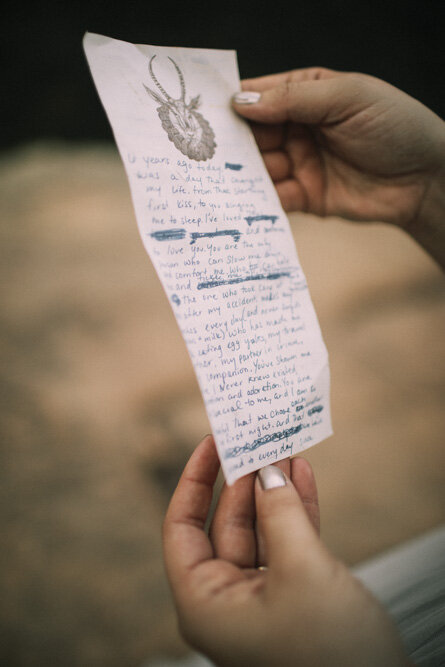 6 years ago today
was a day that changed
my life. from that startling
first kiss, to you singing
me to sleep. I've loved
and continue
to love you. You are the only
man who can slow me down,
comfort me, who
and
The one who took care of
after my accident, makes my
every day (and never forgets
milk) who has made me
eating egg yolks, my travel
my partner in crime,
companion. You've shown me
I never knew existed,
and adoration. You are
special to me, and I am so
that we chose each
first night. And that
and to every day